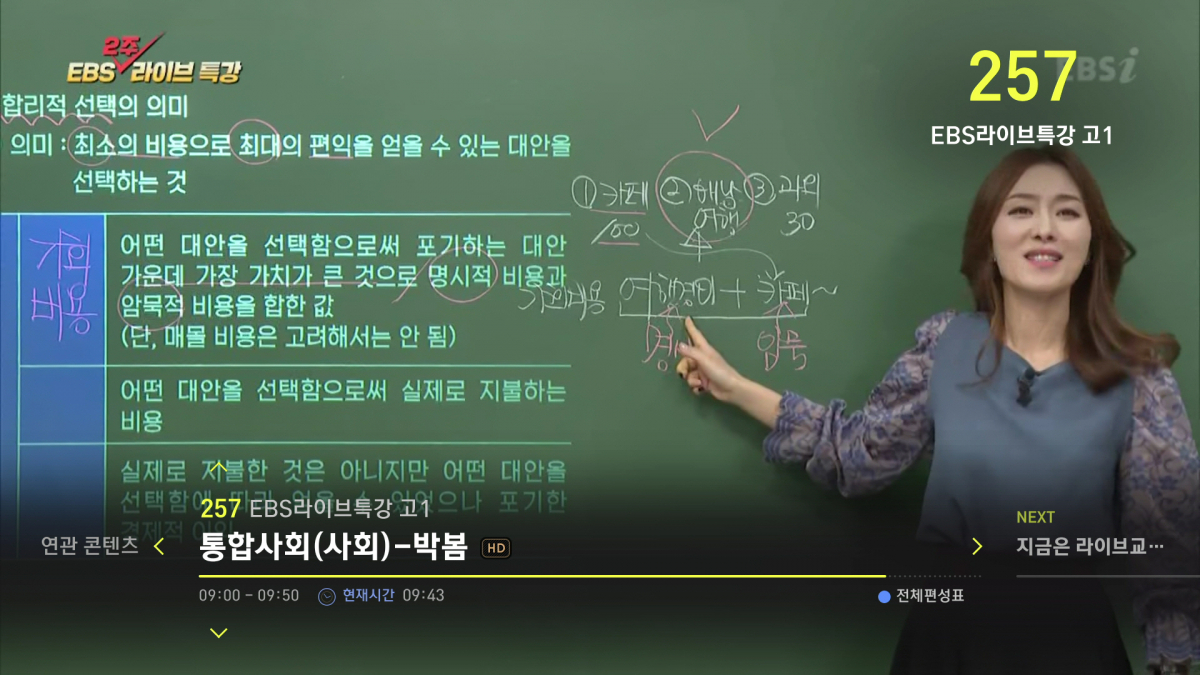 2주
EBS 라이브 특강
257
EBSi
EBS라이브특강 고1
합리적 선택의 의미
의미 : 최소의 비용으로 최대의 편익을 얻을 수 있는 대안을
선택하는 것
어떤 대안을 선택함으로써 포기하는 대안
가운데 가장 가치가 큰 것으로 명시적 비용과
암묵적 비용을 합한 값
(단, 매몰 비용은 고려해서는 안 됨)
어떤 대안을 선택함으로써 실제로 지불하는
비용
실제로 지불한 것은 아니지만 어떤 대안을
선택함에 따라 얻을 수 있었으나 포기한
경제적 이익
① 카페 ② 해남 ③ 과외
여행
30
기회비용 여행경비 + 카페~
명 암묵
257 EBS라이브특강 고1
연관 콘텐츠
통합사회(사회)-박봄 HD
09:00 - 09:50 현재시간 09:43
전체편성표
NEXT
지금은 라이브교…